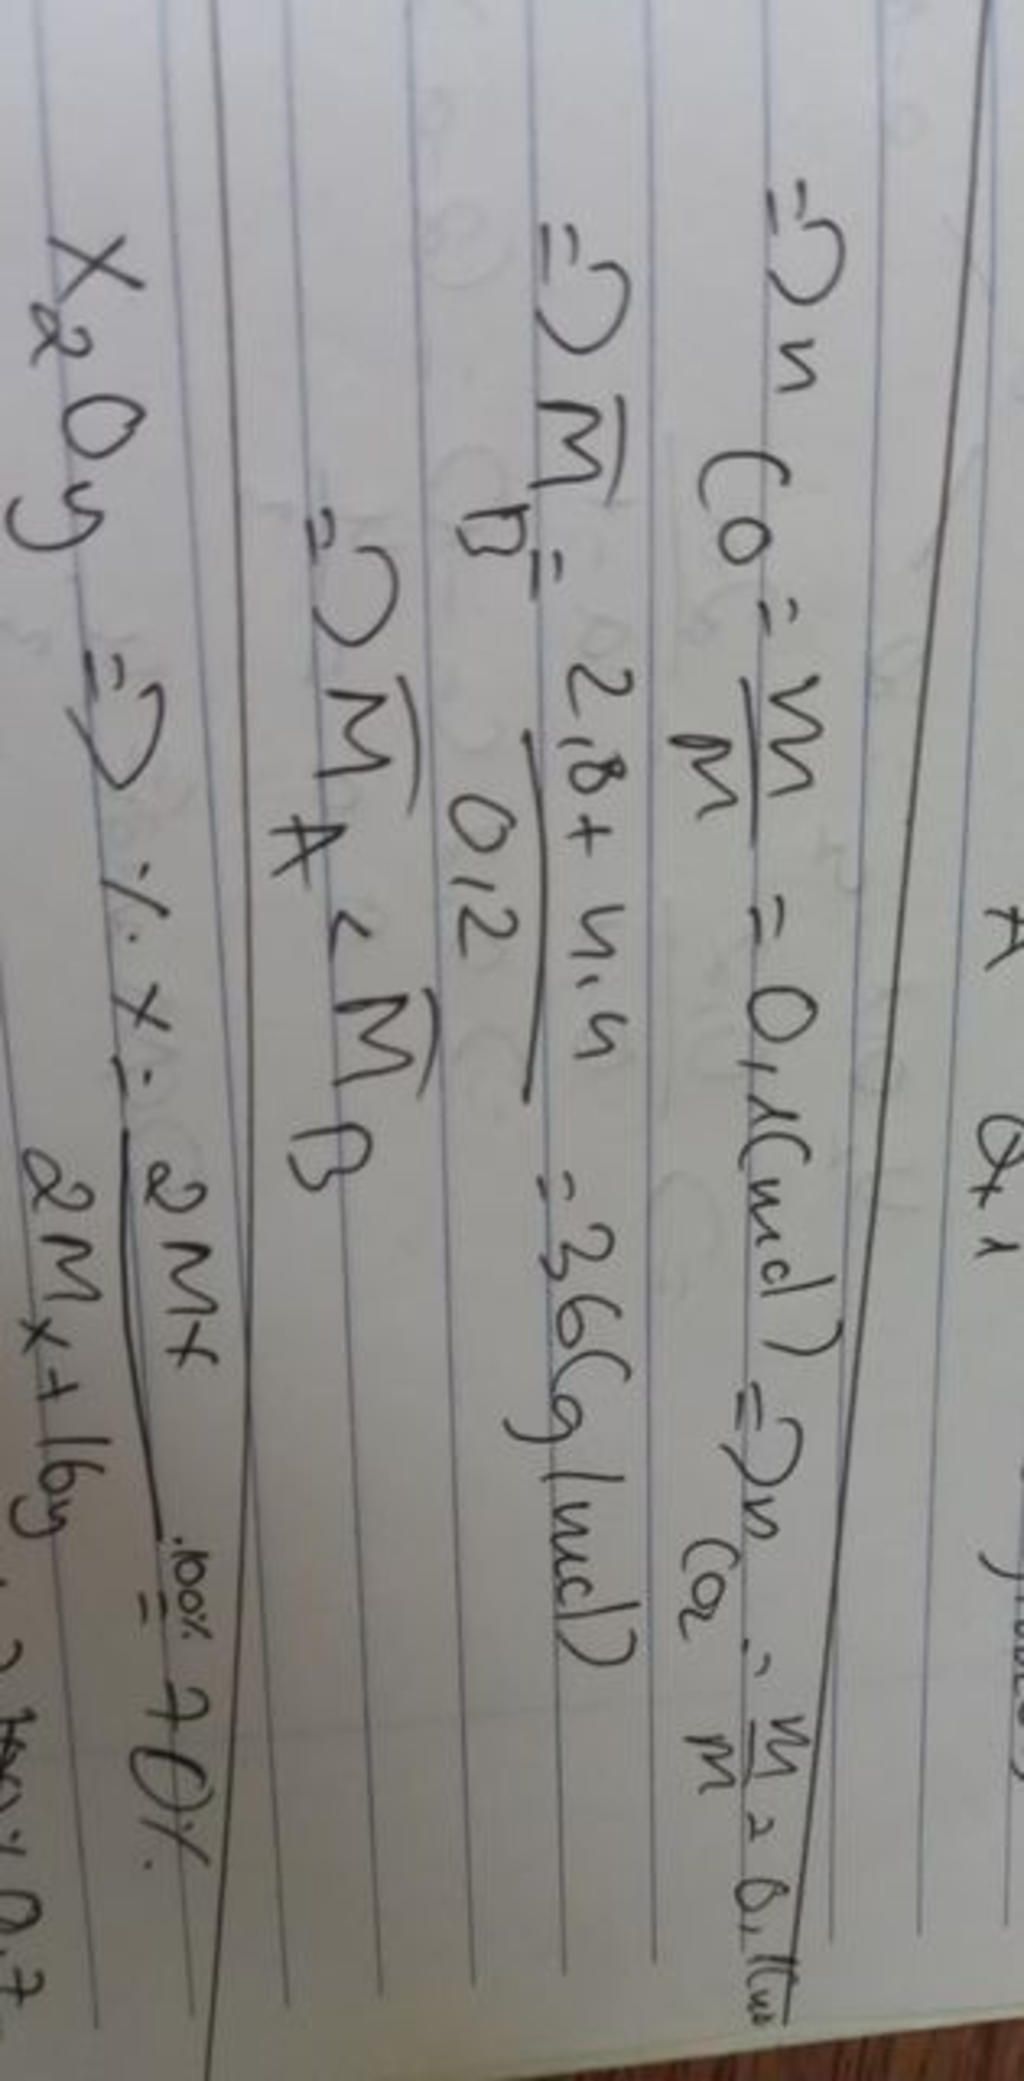 A
=> n CO = m/M = 0,1 (mol) => n CO2 = m/M = 0,1 (mo
=> M̅ B = 2,8 + 4,4 / 0,2 = 36 (g/mol)
=> M̅ A < M̅ B
X2Oy => % X = 2MX / 2MX + 16y .100% = 70%
0,7